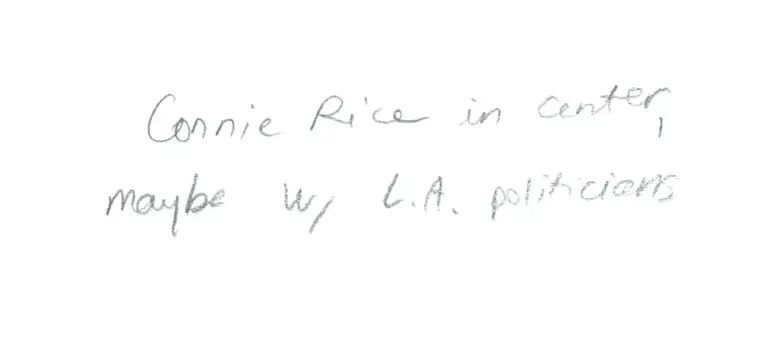 Connie Rice in center,
maybe w/ L.A. politicians